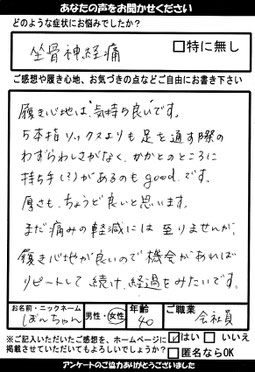 あなたの声をお聞かせください
どのような症状にお悩みでしたか?
坐骨神経痛
□特に無し
ご感想や履き心地、お気づきの点などご自由にお書き下さい
履き心地は"気持ち良い"です。
5本指ソックスよりも足を通す際の
わずらわしさがなく、かかとのところに
持ち手(?)があるのもgoodです。
厚さも、ちょうど良いと思います。
まだ痛みの軽減には至りませんが、
履き心地が良いので機会があれば
リピートして続け、経過をみたいです。
お名前・ニックネーム
ぽんちゃん
男性・女性
年齢
40
ご職業
会社員
※ご記入いただいたご感想を、ホームページに
掲載させていただいてもよろしいでしょうか?
☑はい □いいえ
□匿名ならOK
アンケートのご協力ありがとうございました